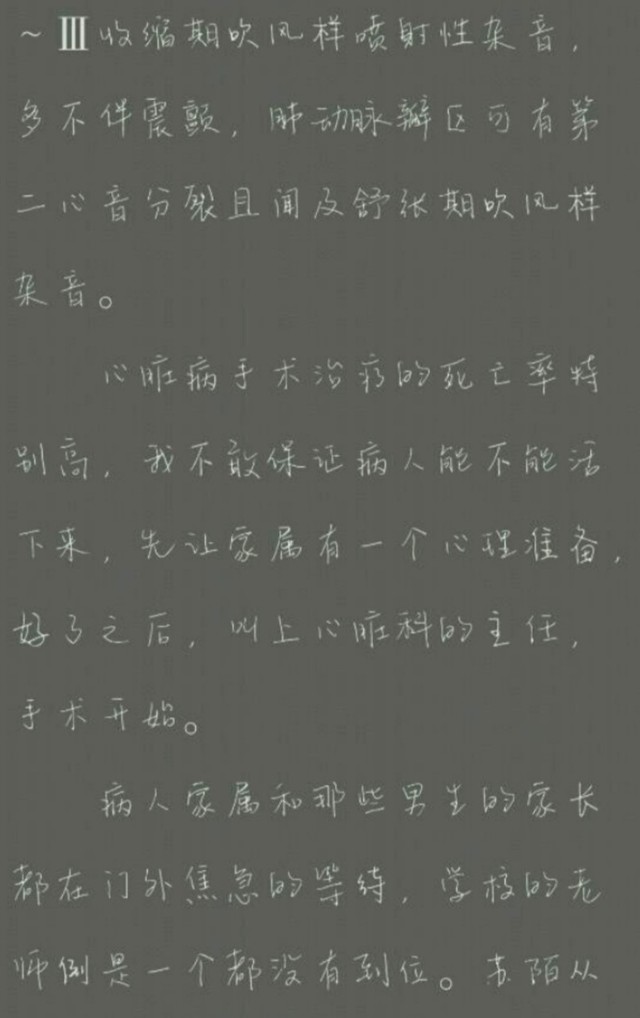 ～Ⅲ收缩期吹风样喷射性杂音，
多不伴震颤，肺动脉瓣区可有第
二心音分裂且闻及舒张期吹风样
杂音。
心脏病手术治疗的死亡率特
别高，我不敢保证病人能不能活
下来，先让家属有一个心理准备，
好了之后，叫上心脏科的主任，
手术开始。
病人家属和那些男生的家长
都在门外焦急的等待，学校的老
师倒是一个都没有到位。苏陌从